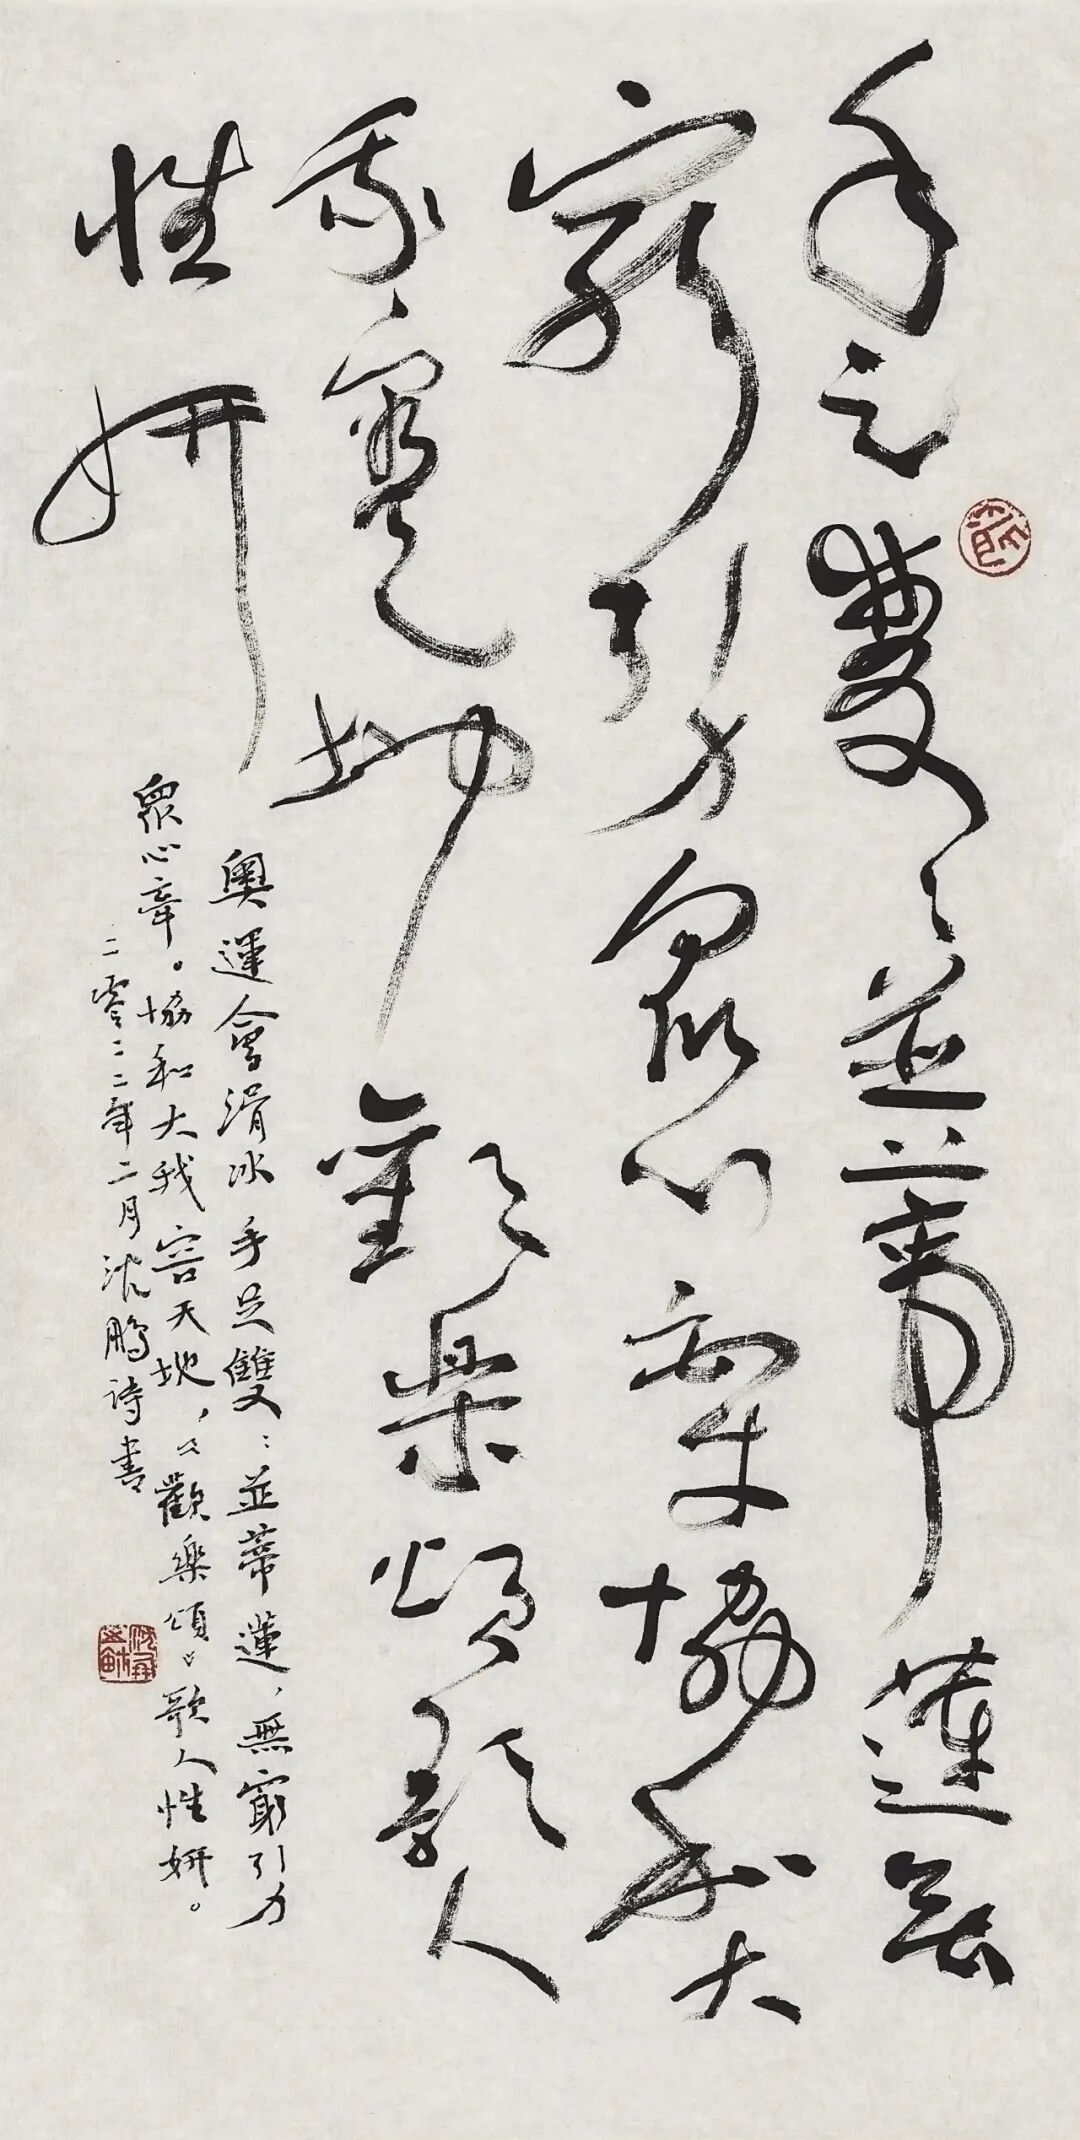 手足雙〻並蒂蓮無
窮引力眾心牽協和大
我容天地歡樂頌歌人
性妍
奧運會滑冰手足雙〻並蒂蓮,無窮引力
眾心牽。協和大我容天地,《歡樂頌》歌人性妍。
二零二二年二月沈鵬詩書